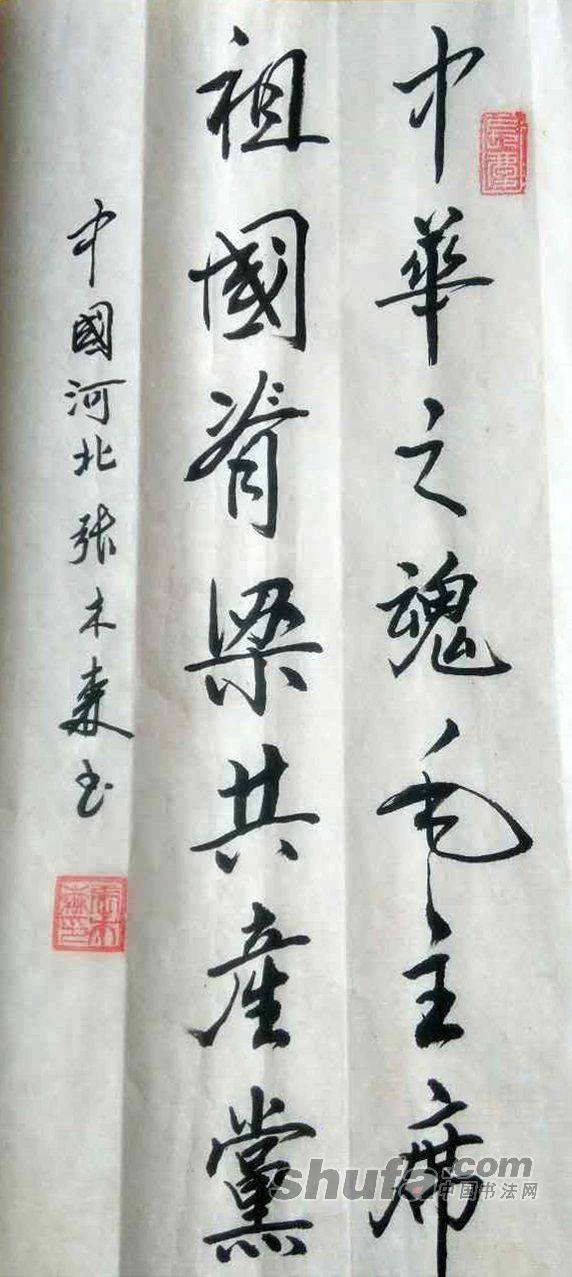 中華之魂毛主席
祖國脊梁共産黨
中國河北張木森书
shufa.com
中国书法网